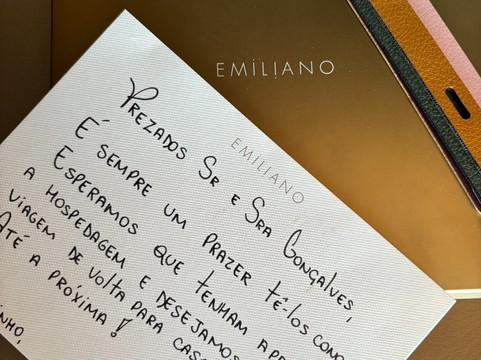 EMILIANO
EMILIANO
PREZADOS SR E SRA GONÇALVES,
É SEMPRE UM PRAZER TÊ-LOS
ESPERAMOS QUE TENHAM
A HOSPEDAGEM E DESEJAMOS
VIAGEM DE VOLTA PARA
ATÉ A PRÓXIMA!